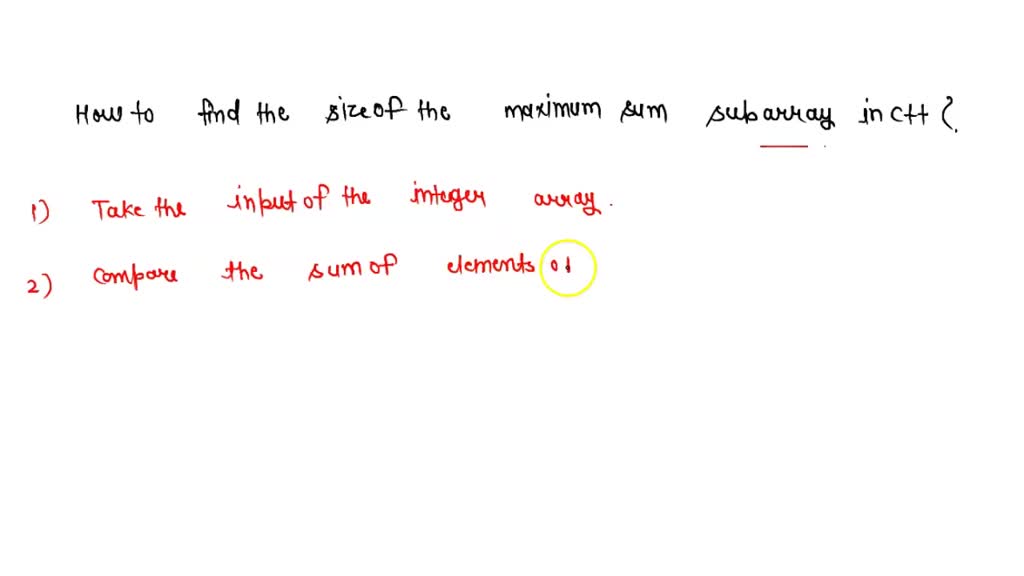 How to find the size of the maximum sum subarray in c++ ?
1) Take the input of the integer array.
2) compare the sum of elements